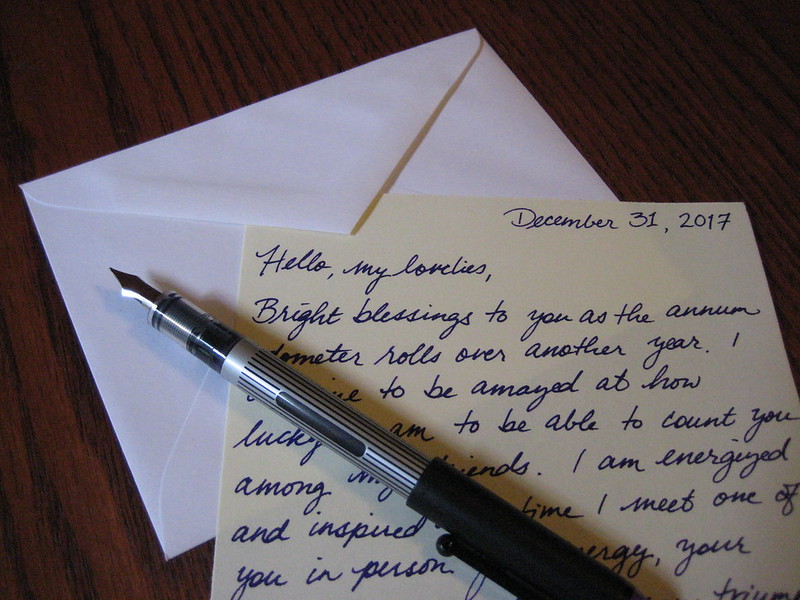 December 31, 2017
Hello, my lovelies,
Bright blessings to you as the annum
ometer rolls over another year. I
ue to be amazed at how
lucky am to be able to count you
among my friends. I am energized
and inspired time I meet one of
you in person nergy, your
trium